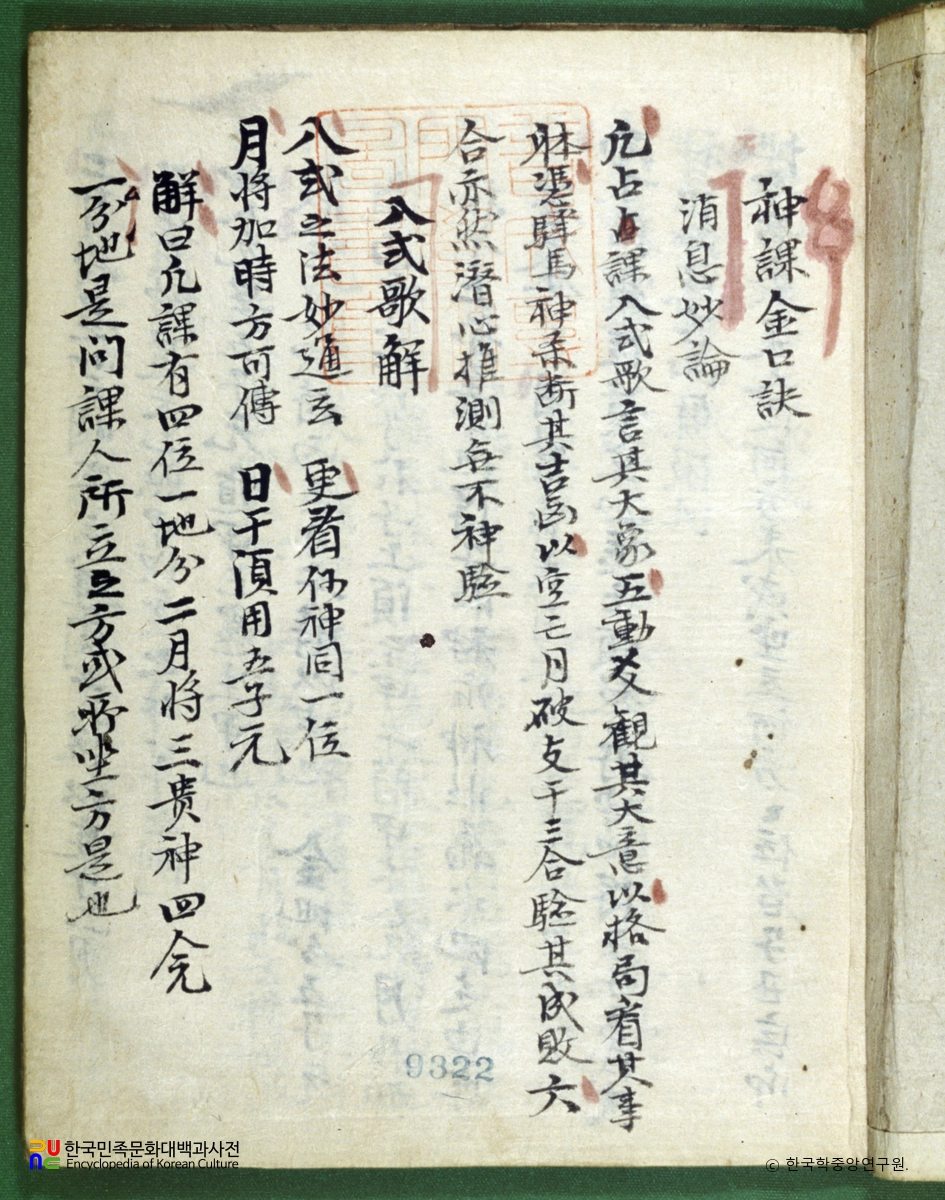 神課金口訣
消息妙論
凡占課入式歌言其大象五動爻觀其大意以格局看其事
躰憑驛馬神杀断其吉凶以空亡月破支干三合驗其成敗六
合亦然潜心推測無不神驗
入式歌解
入式之法妙通玄 更看何神同一位
月將加時方可傳 日干須用五子元
解曰凡課有四位一地分二月將三貴神四人元
一分地是问課人所立之方或所坐方是也
9322
한국민족문화대백과사전
Encyclopedia of Korean Culture
© 한국학중앙연구원.